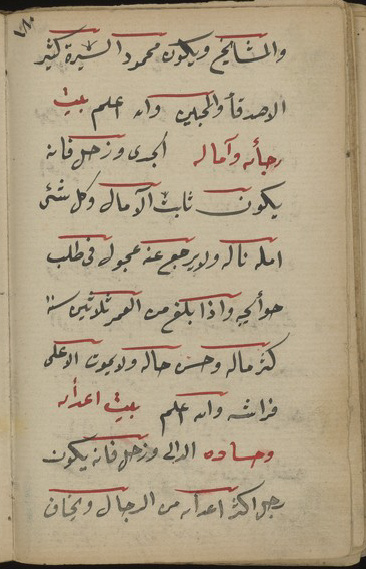 ١٨٠
والمشايخ ويكون محمود السيرة كثير
الاصدقاء والمحبين والله اعلم بيت
رجائه وآماله الجدى وزحل فانه
يكون ثابت الآمال وكل شئ
امله ناله ولا يرجع عنه عجول فى طلب
حوائجه واذا بلغ من العمر ثلاثين سنة
كثر ماله وحسن حاله ولا يموت الا على
فراشه والله اعلم بيت اعدائه
وحساده الدالى وزحل فانه يكون
رجل اكثر اعدائه من الرجال ويخاف